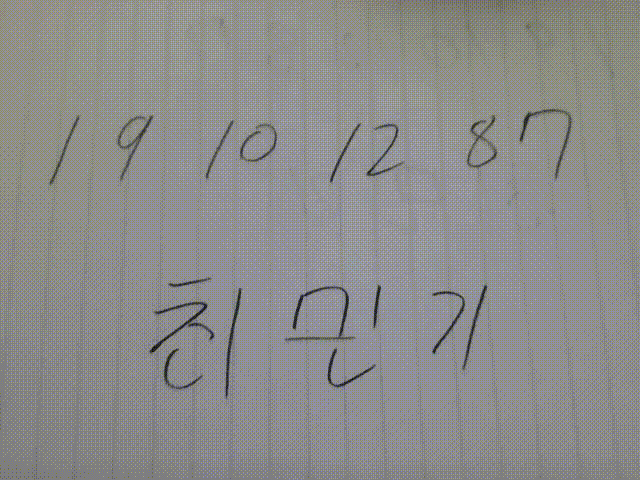 1 9 10 12 87
친 민 기